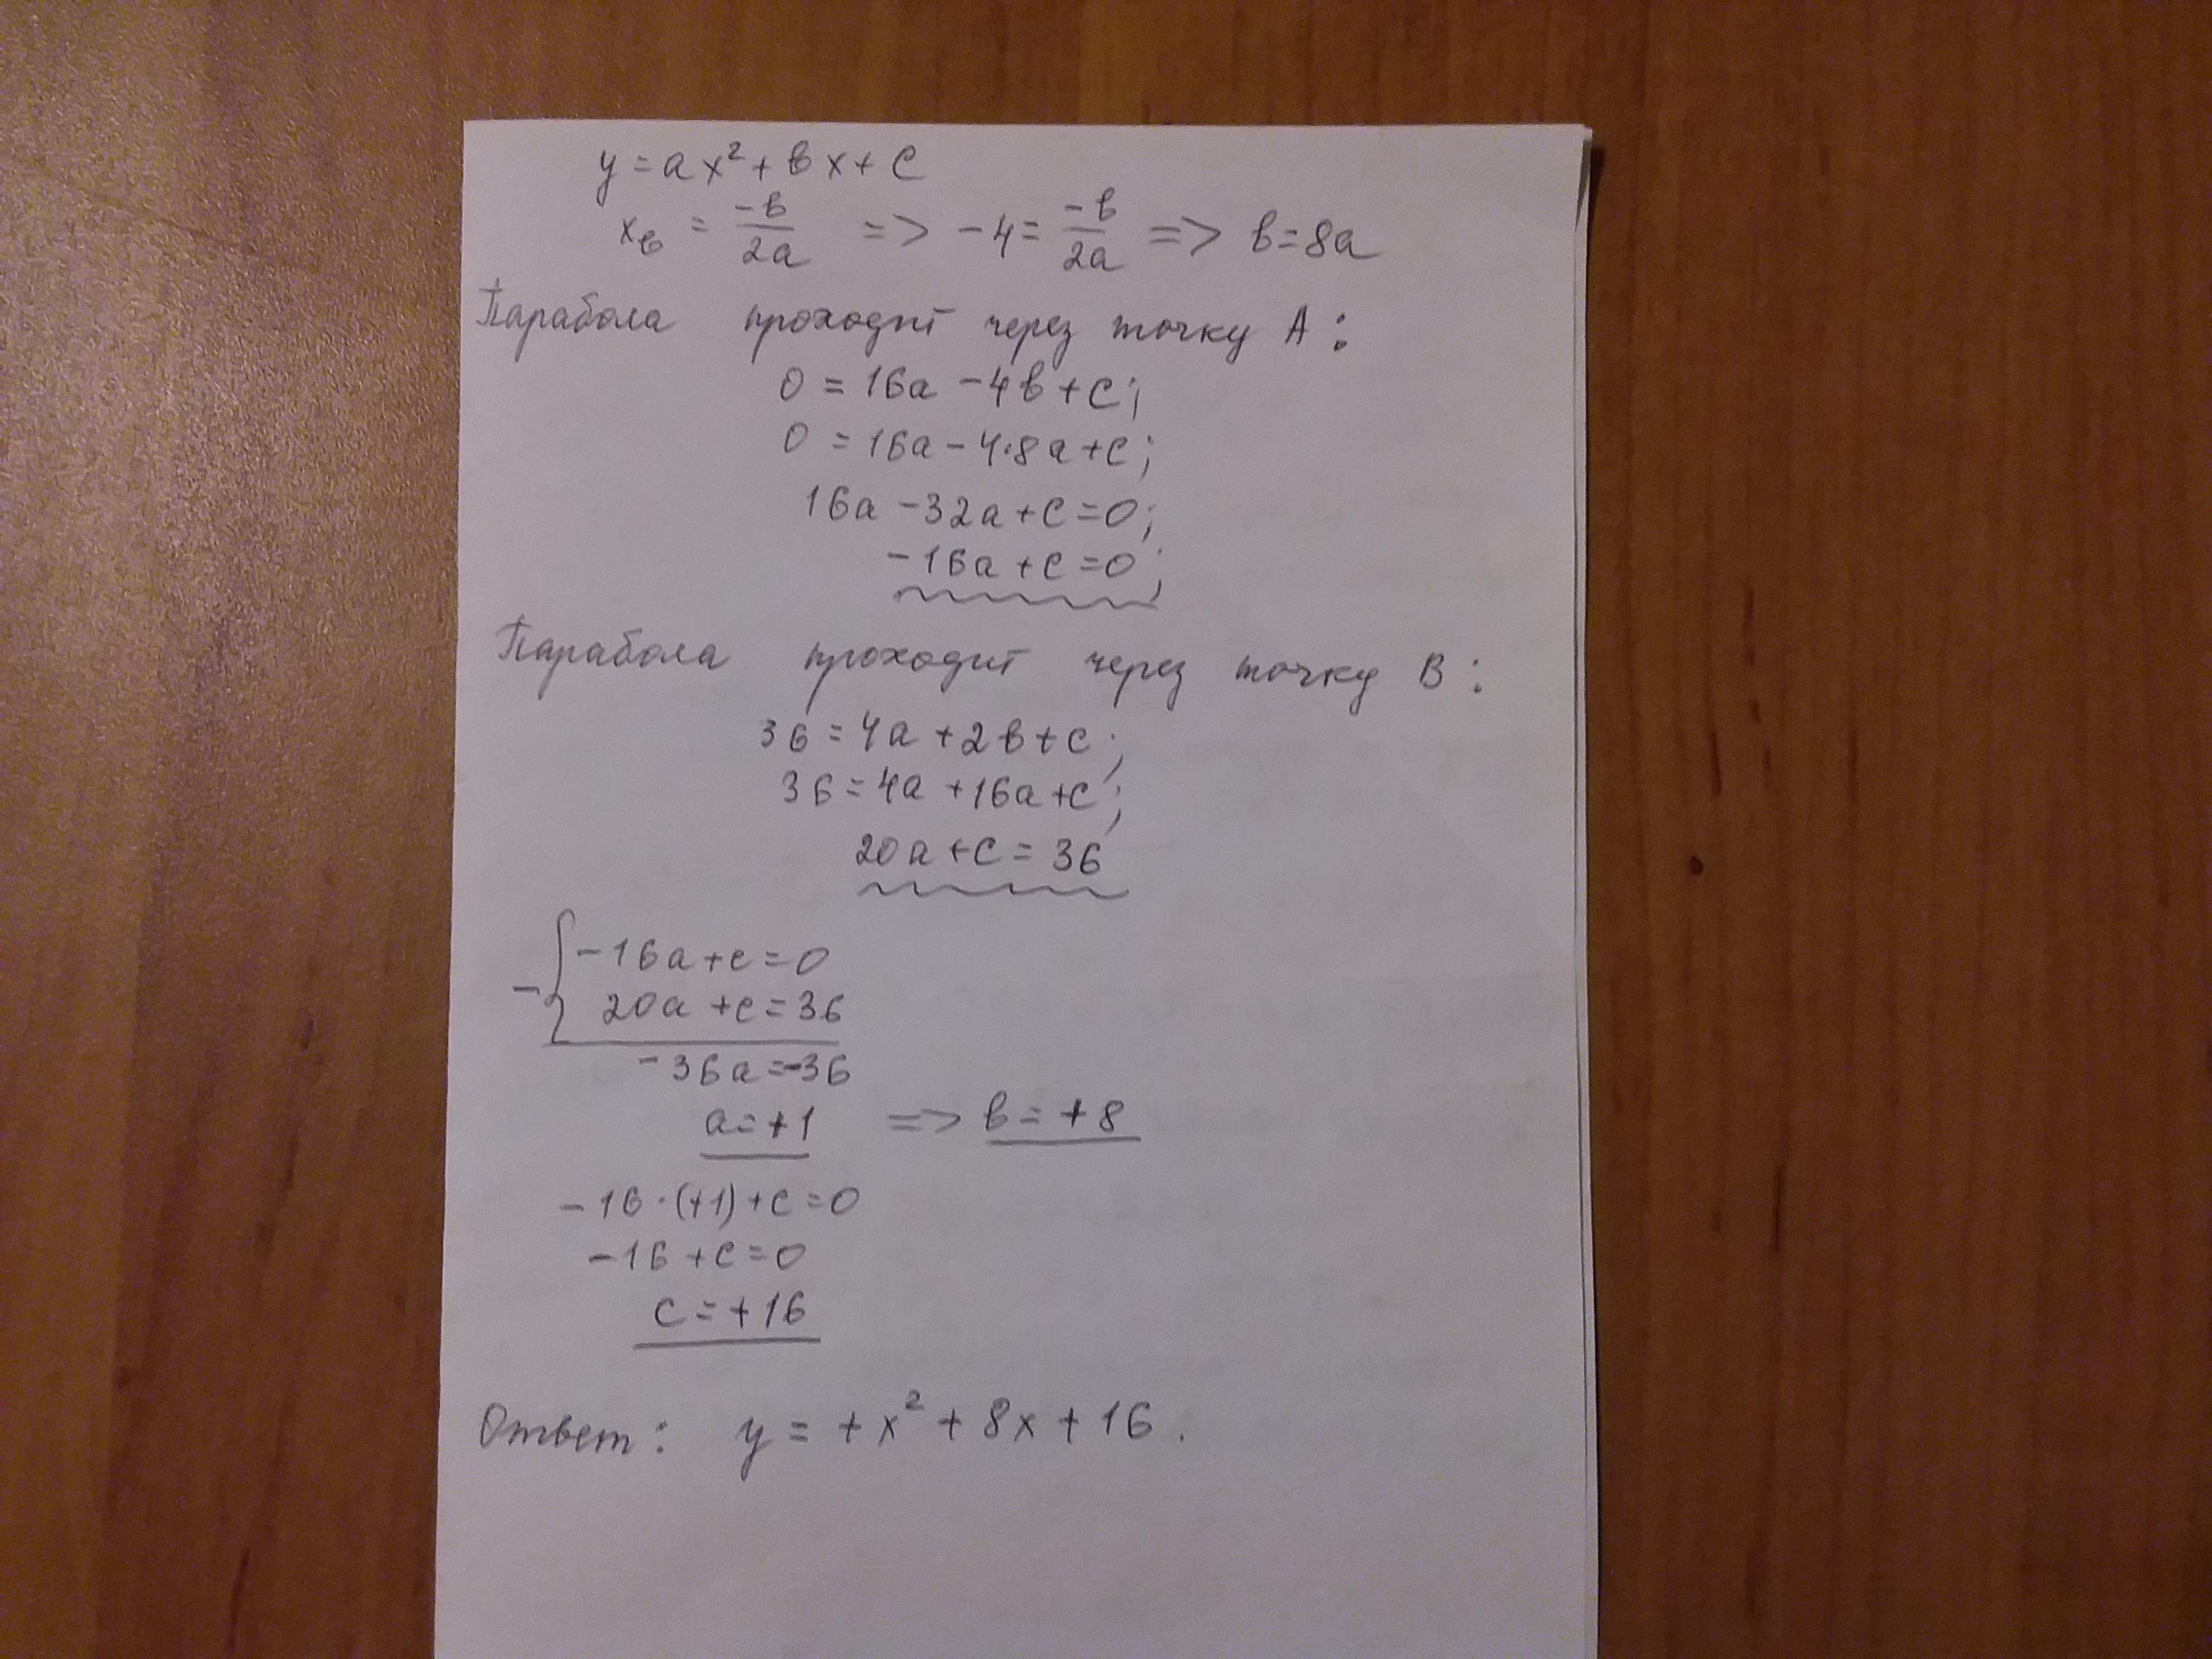 y = ax² + вx + c
xв = -в/2a => -4 = -в/2a => в = 8a
Парабола проходит через точку A:
0 = 16a - 4в + c;
0 = 16a - 4·8a + c;
16a - 32a + c = 0;
-16a + c = 0;
Парабола проходит через точку B:
36 = 4a + 2в + c;
36 = 4a + 16a + c;
20a + c = 36
- { -16a + c = 0
20a + c = 36
-36a = -36
a = +1 => в = +8
-16·(+1) + c = 0
-16 + c = 0
c = +16
Ответ: y = +x² + 8x + 16.